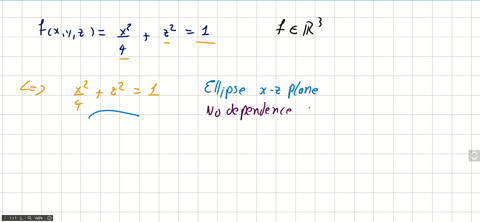 f(x,y,z) = x²/4 + z² = 1 f ∈ ℝ³
<=> x²/4 + z² = 1 Ellipse x-z plane
No dependence